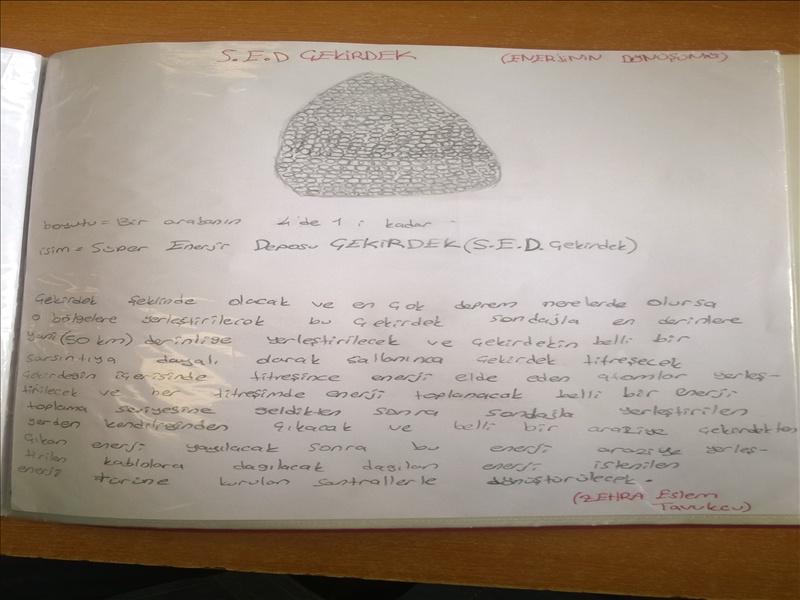 S.E.D ÇEKİRDEK
(ENERJİNİN DÖNÜŞÜMÜ)
boyutu = Bir arabanın 4'de 1'i kadar
isim = Süper Enerji Deposu ÇEKİRDEK (S.E.D. Çekirdek)
Çekirdek şeklinde olacak ve en çok deprem nerelerde olursa
o bölgelere yerleştirilecek bu çekirdek sondajla en derinlere
yani (50 km) derinliğe yerleştirilecek ve çekirdekin belli bir
sarsıntıya dayalı olarak sallanınca çekirdek titreşecek
çekirdeğin içerisinde titreşince enerji elde eden atomlar yerleş-
tirilecek ve her titreşimde enerji toplanacak belli bir enerji
toplama seviyesine geldikten sonra sondajla yerleştirilen
yerden kendiliğinden çıkacak ve belli bir araziye çekirdekten
çıkan enerji yayılacak sonra bu enerji araziye yerleş-
tirilen kablolara dağılacak dağılan enerji istenilen
enerji türüne kurulan santrallerle dönüştürülecek.
(ZEHRA Eslem
Tavukcu)